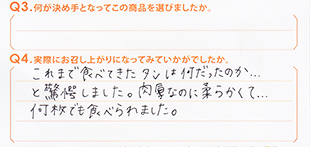 Q3.何が決め手となってこの商品を選びましたか。
Q4.実際にお召し上がりになってみていかがでしたか。
これまで食べてきたタンは何だったのか…
と驚愕しました。肉厚なのに柔らかくて…
何枚でも食べられました。